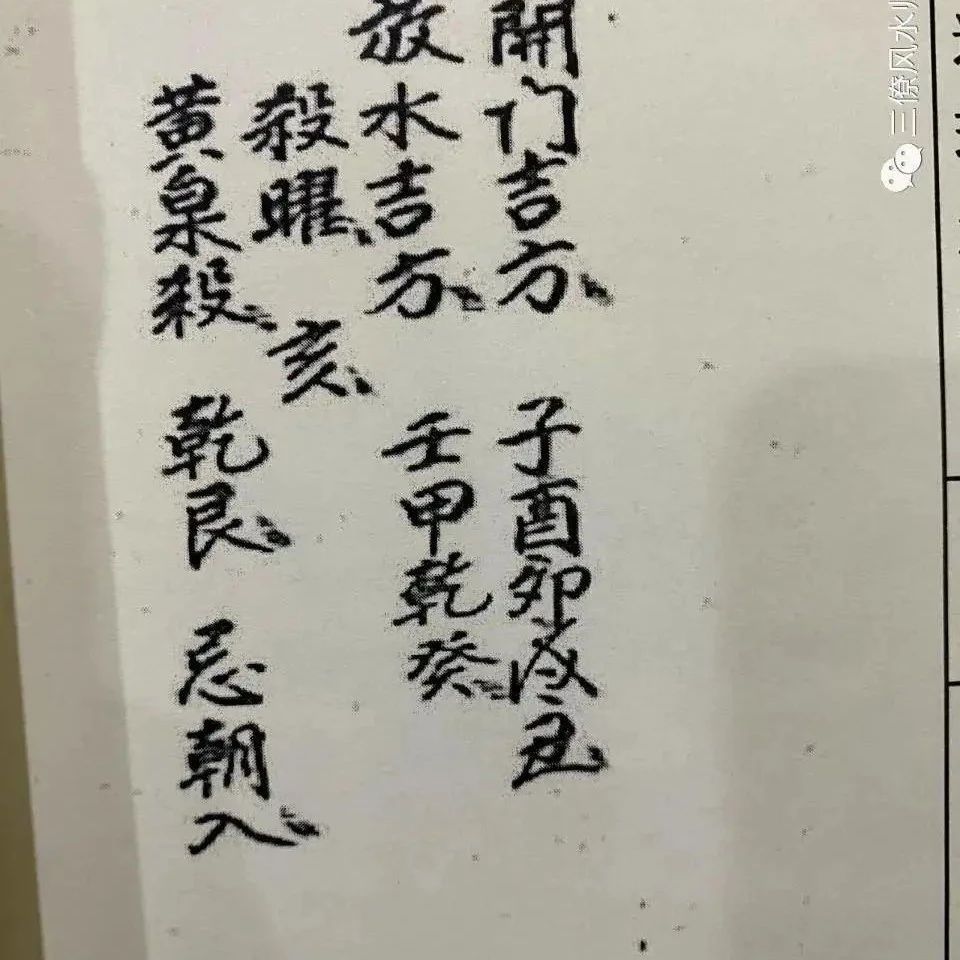 開门吉方、子酉卯
放水吉方、壬甲乾癸、
殺曜、亥、
黄泉殺、乾艮、忌朝入、
三僚风水